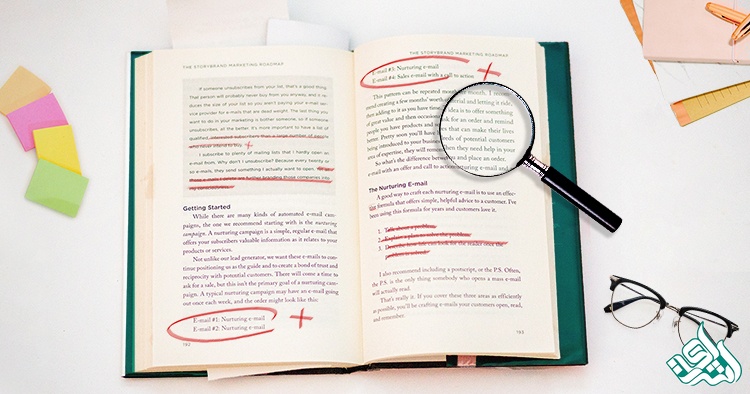 THE STORYBRAND MARKETING ROADMAP
If someone unsubscribes from your list, that's a good thing.
That person will probably never buy from you anyway, and it re-
duces the size of your list so you aren't paying your e-mail ser-
vice provider for e-mails that are dead weight. The last thing you
want to do in your marketing is bother someone, so if someone
unsubscribes, all the better. It's more important to have a list of
qualified, interested subscribers than a large number of people
who never intend to
I subscribe to plenty of mailing lists that I hardly open an
e-mail from. Why don't I unsubscribe? Because every twenty or
so e-mails, they send something I actually want to open.
those e-mails are further branding those companies into
my consciousness.
Getting Started
While there are many kinds of automated e-mail cam-
paigns, the one we recommend starting is the nurturing
campaign. A nurturing campaign is a simple, regular e-mail that
offers your subscribers valuable information as it relates to your
products or services.
Not unlike our lead generator, we want these e-mails to con-
tinue positioning us as the guide and to create a bond of trust and
reciprocity with potential customers. There will come a time to
ask for a sale, but this isn't the primary goal of a nurturing cam-
paign. A typical nurturing campaign may have an e-mail going
out once each week, and the order might look like this:
E-mail #1: Nurturing e-mail
E-mail #2: Nurturing e-mail
192
THE STORYBRAND MARKETING ROADMAP
E-mail #3: Nurturing e-mail
E-mail #4: Sales e-mail with a call to action
This pattern can be repeated month
mend creating a few months' worth
then adding to it as you have time.
idea is to offer something
of great value and then occasion
ask for an order and remind
people you have products and
ices that can make their lives
better. Pretty soon you'll have
reds of potential customers
being introduced to your business
area of expertise, they will remem
then they need help in your
and place an order.
So what's the difference between
with an offer and call to action
nurturing e-mail and
The Nurturing E-mail
A good way to craft each nurturing e-mail is to use an effec-
tive formula that offers simple, helpful advice to a customer. I've
been using this formula for years and customers love it.
1. Talk about a problem.
2. Explain a plan to solve the problem.
3. Describe how life can look for the reader once the
problem is solved.
I also recommend including a postscript, or the P.S. Often,
the P.S. is the only thing somebody who opens a mass e-mail
will actually read.
That's really it. If you cover these three areas as efficiently
as possible, you'll be crafting e-mails your customers open, read,
and remember.
193